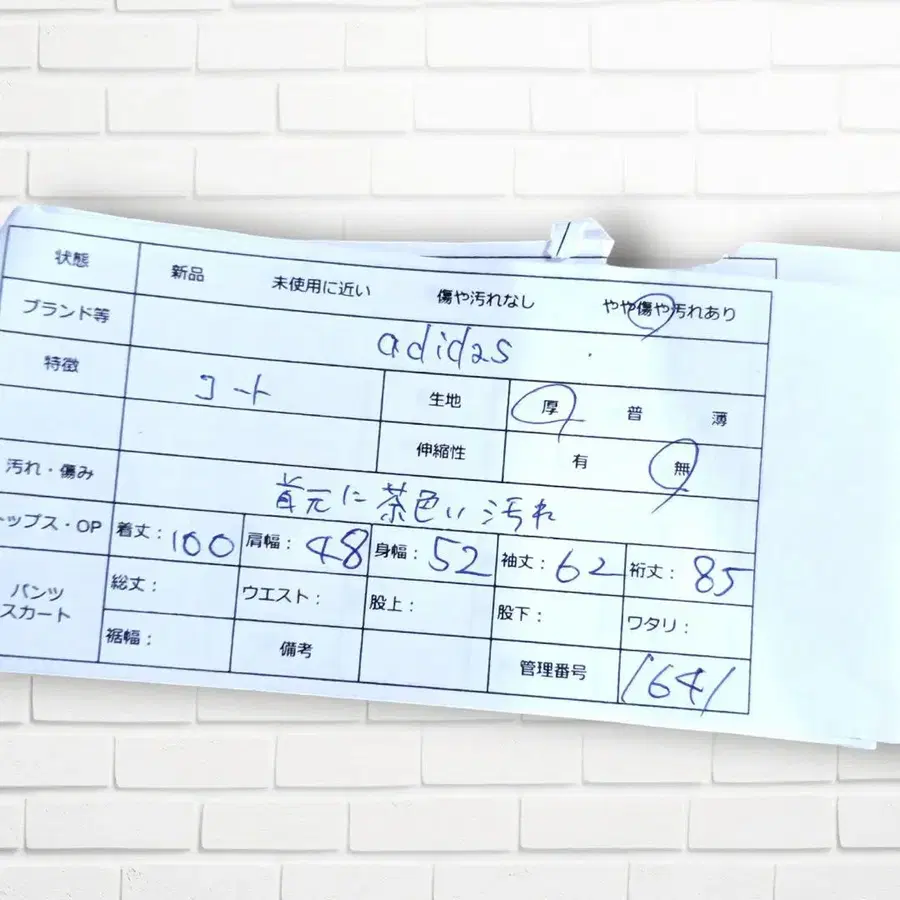 状態 新品 未使用に近い 傷や汚れなし やや傷や汚れあり
ブランド等 adidas
特徴 コート 生地 厚 普 薄
伸縮性 有 無
汚れ・傷み 首元に茶色い汚れ
ップス・OP 着丈: 100 肩幅: 48 身幅: 52 袖丈: 62 裄丈: 85
パンツ
スカート
総丈: ウエスト: 股上: 股下: ワタリ:
裾幅: 備考 管理番号 1641